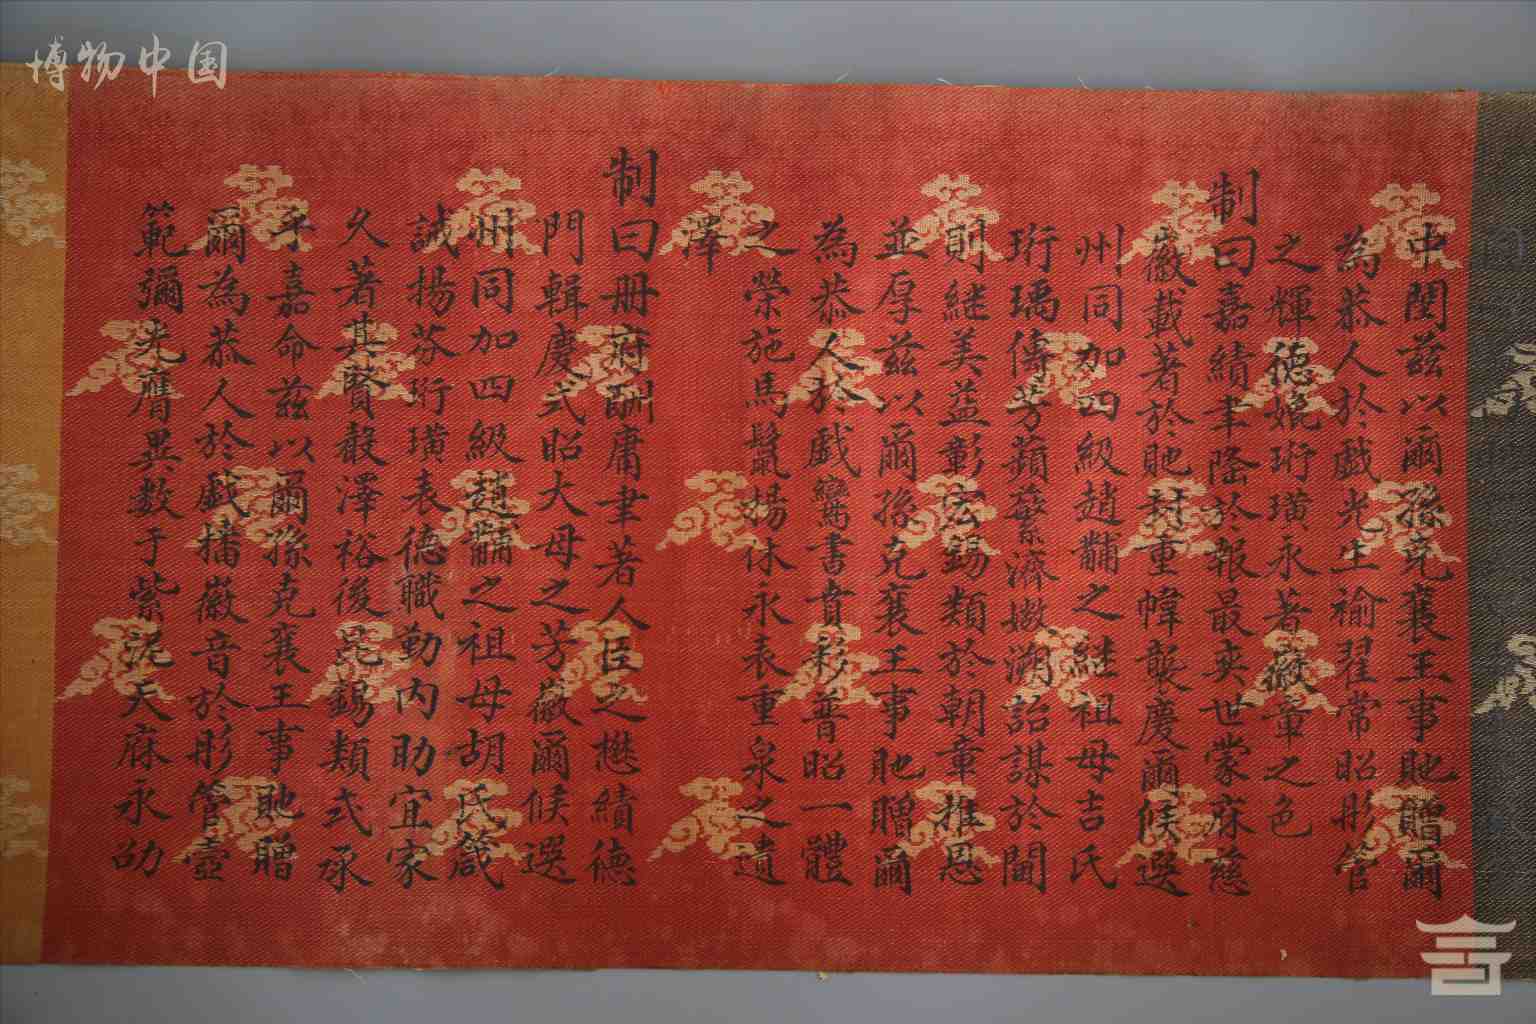 博物中国
中閨茲以爾孫克襄王事貤贈爾
為恭人於戲光生褕翟常昭彤管
之輝德媲珩璜永著徽章之色
制曰嘉績聿隆於報最奕世蒙庥慈
徽載著於貤封重幃襲慶爾候選
州同加四級趙黼之繼祖母吉氏
珩瑀傳芳蘋蘩濟媺溯詒謀於閫
則繼美益彰宏錫類於朝章推恩
並厚茲以爾孫克襄王事貤贈爾
為恭人於戲鸞書賁彩普昭一體
之榮施馬鬣揚休永表重泉之遺
澤
制曰冊府酬庸聿著人臣之懋績德
門輯慶式昭大母之芳徽爾候選
州同加四級趙黼之祖母胡氏箴
誠揚芬珩璜表德職勤內助宜家
久著其賢穀澤裕後昆錫類式承
乎嘉命茲以爾孫克襄王事貤贈
爾為恭人於戲播徽音於彤管壼
範彌光膺異數于紫泥天庥永劭